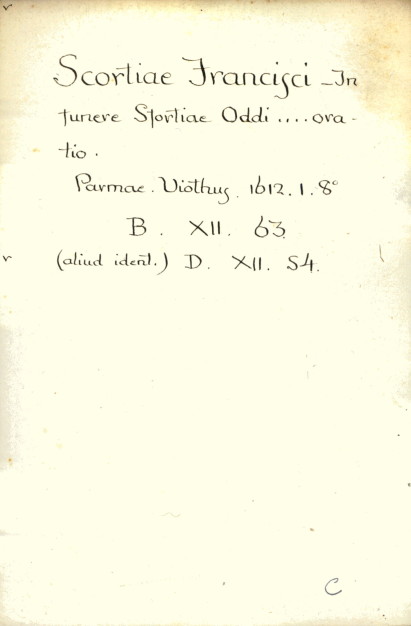 Scortiae Francisci - In
funere Sfortiae Oddi .... ora-
tio.
Parmae. Viothus. 1612. 1. 8°
B. XII. 63
(aliud ident.) D. XII. 54.
C